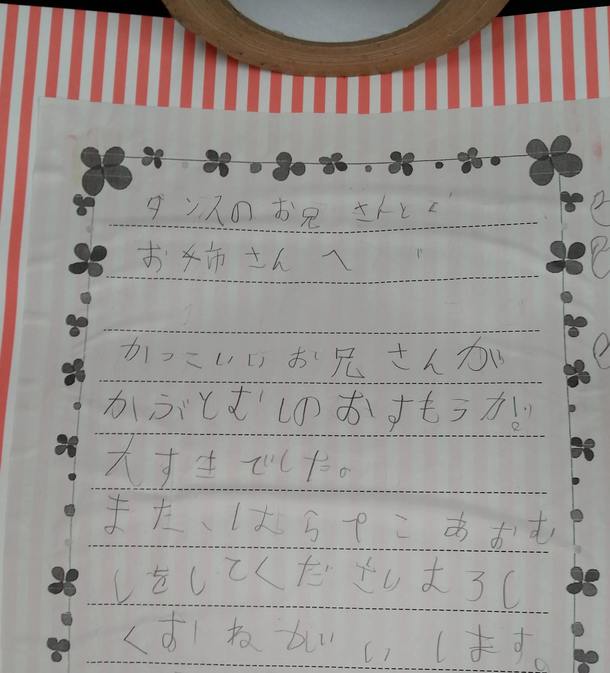 ダンスのお兄さんと
お姉さんへ
かっこいいお兄さんが
かぶとむしのおすもうが
大すきでした。
また、はらぺこあおむ
しをしてくださいよろし
くおねがいします。